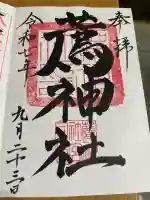 奉拝
神社
令和七年
九月二十三日